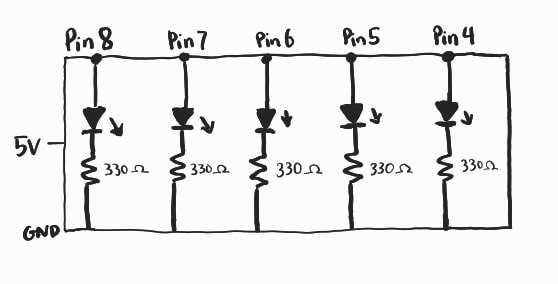 Pin 8 Pin 7 Pin 6 Pin 5 Pin 4
5V
330Ω 330Ω 330Ω 330Ω 330Ω
GND